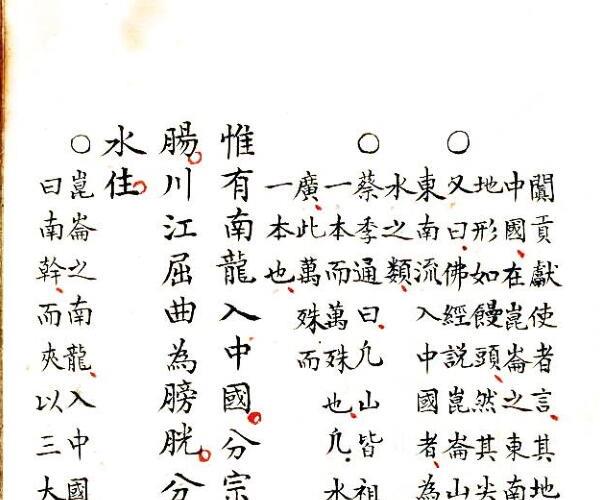 闐貢獻使者言其地
中國在崑崙之東南
地形如饅頭然其尖
○又曰佛經說崑崙山
東南流入中國者為
水之類
○蔡季通曰凡山皆祖
一本而萬殊也凡水
廣此萬殊而
一本也
惟有南龍入中國分宗
腸川江屈曲為膀胱分
水住
○崑崙之南龍入中國
曰南幹而夾以三大